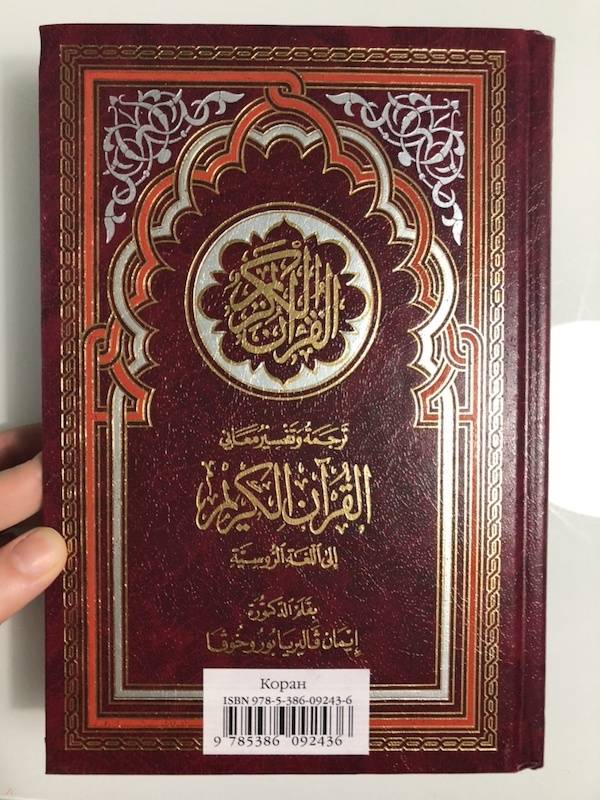 القرآن الكريم
ترجمة وتفسير معاني
القرآن الكريم
إلى اللغة الروسية
بقلم الدكتورة
إيمان ڤاليريا بوروخوڤا
Коран
ISBN 978-5-386-09243-6
9 785386 092436